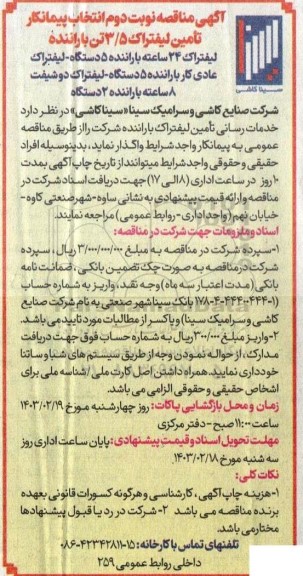 آگهی مناقصه نوبت دوم انتخاب پیمانکار
تامین لیفتراک ۳/۵ تن با راننده
سینا کاشی
لیفتراک ۲۴ ساعته با راننده ۵ دستگاه - لیفتراک
عادی کار با راننده ۵ دستگاه - لیفتراک دو شیفت
۸ ساعته با راننده ۲ دستگاه
شرکت صنایع کاشی و سرامیک سینا «سینا کاشی» در نظر دارد
خدمات رسانی تأمین لیفتراک با راننده شرکت را از طریق مناقصه
عمومی به پیمانکار واجد شرایط واگذار نماید، بدینوسیله افراد
حقیقی و حقوقی واجد شرایط میتوانند از تاریخ چاپ آگهی بمدت
۱۰ روز در ساعت اداری (۸ الی ۱۷) جهت دریافت اسناد شرکت در
مناقصه و ارائه قیمت پیشنهادی به نشانی ساوه-شهر صنعتی کاوه-
خیابان نهم (واحد اداری - روابط عمومی) مراجعه نمایند.
اسناد و ملزومات جهت شرکت در مناقصه:
۱-سپرده شرکت در مناقصه به مبلغ ۳/۰۰۰/۰۰۰/۰۰۰ ریال، سپرده
شرکت در مناقصه به صورت چک تضمین بانکی، ضمانت نامه
بانکی (مدت اعتبار سه ماه) وجه نقد، واریز به شماره حساب
(۱۷۸-۴-۴۴۴۰۴۴۴-۱ بانک سینا شهر صنعتی به نام شرکت صنایع
کاشی و سرامیک سینا) و یا کسر از مطالبات مورد تایید می باشد.
۲-واریز مبلغ ۳۰۰/۰۰۰ ریال به شماره حساب فوق جهت دریافت
مدارک، از حواله نمودن وجه از طریق سیستم های شبا و ساتنا
خودداری نمایید. همراه داشتن اصل کارت ملی/شناسه ملی برای
اشخاص حقیقی و حقوقی الزامی می باشد.
زمان و محل بازگشایی پاکات: روز چهارشنبه مورخ ۱۴۰۳/۰۲/۱۹
ساعت ۱۱:۰۰ صبح - دفتر مرکزی
مهلت تحویل اسناد و قیمت پیشنهادی: پایان ساعت اداری روز
سه شنبه مورخ ۱۴۰۳/۰۲/۱۸.
نکات کلی:
۱-هزینه چاپ آگهی، کارشناسی و هرگونه کسورات قانونی بعهده
برنده مناقصه می باشد ۲-شرکت در رد یا قبول پیشنهادها
مختار می باشد.
تلفنهای تماس با کارخانه: ۱۵-۰۸۶۰۴۲۳۴۲۸۱۱
داخلی روابط عمومی ۲۵۹